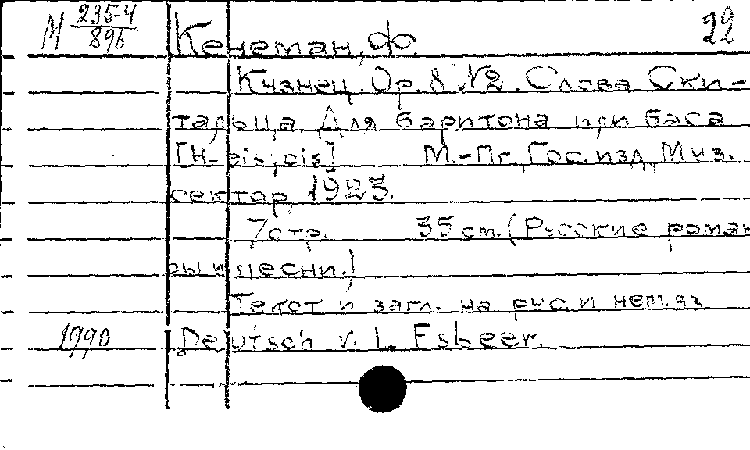 М 235-4/896
22
Кенеман, Ф.
Кузнец. Op. 8 №2. Слова Ски-
тальца. Для баритона или баса
[H-eis; cis] М.-Пг. Гос. изд. Муз.
сектор, 1923.
7 стр. 35 cm. (Русские роман
сы и песни.)
Текст и загл. на рус. и нем. яз.
1990 Deutsch v. L. Esbeer.